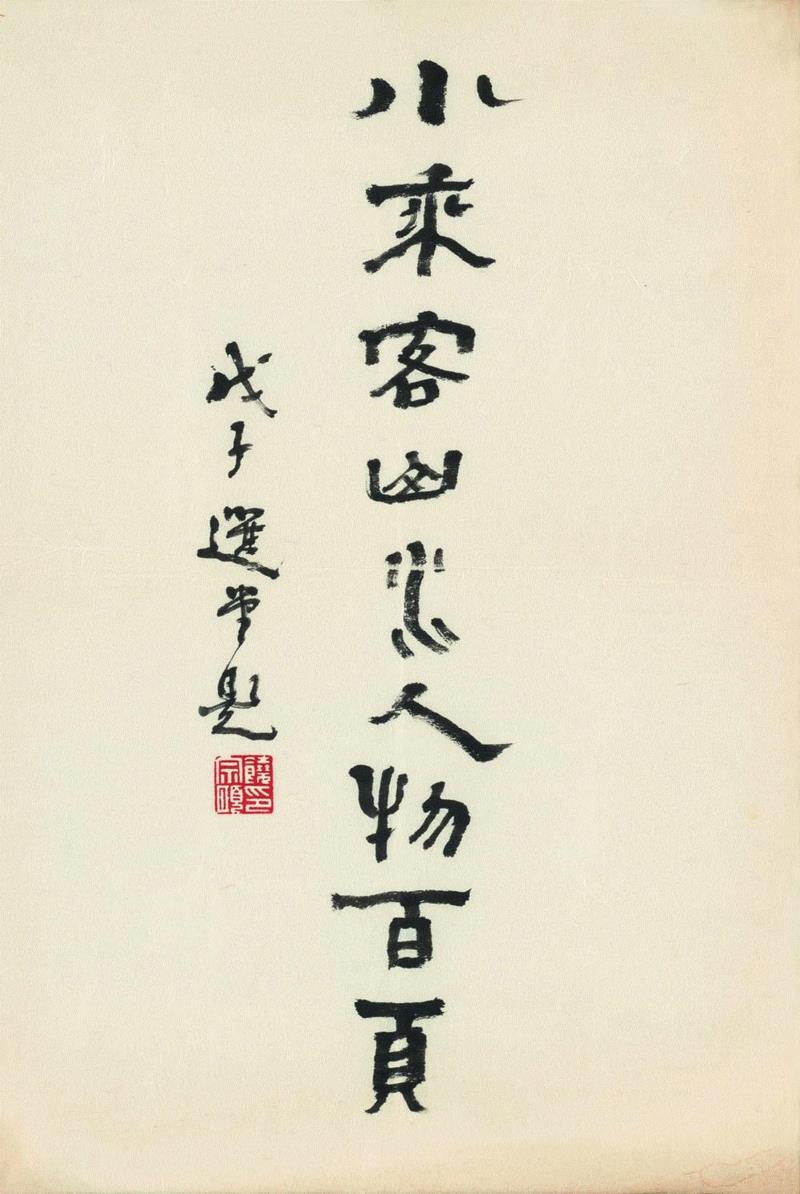 小乘客山水人物百頁
戊子選堂題
饒印
宗頤